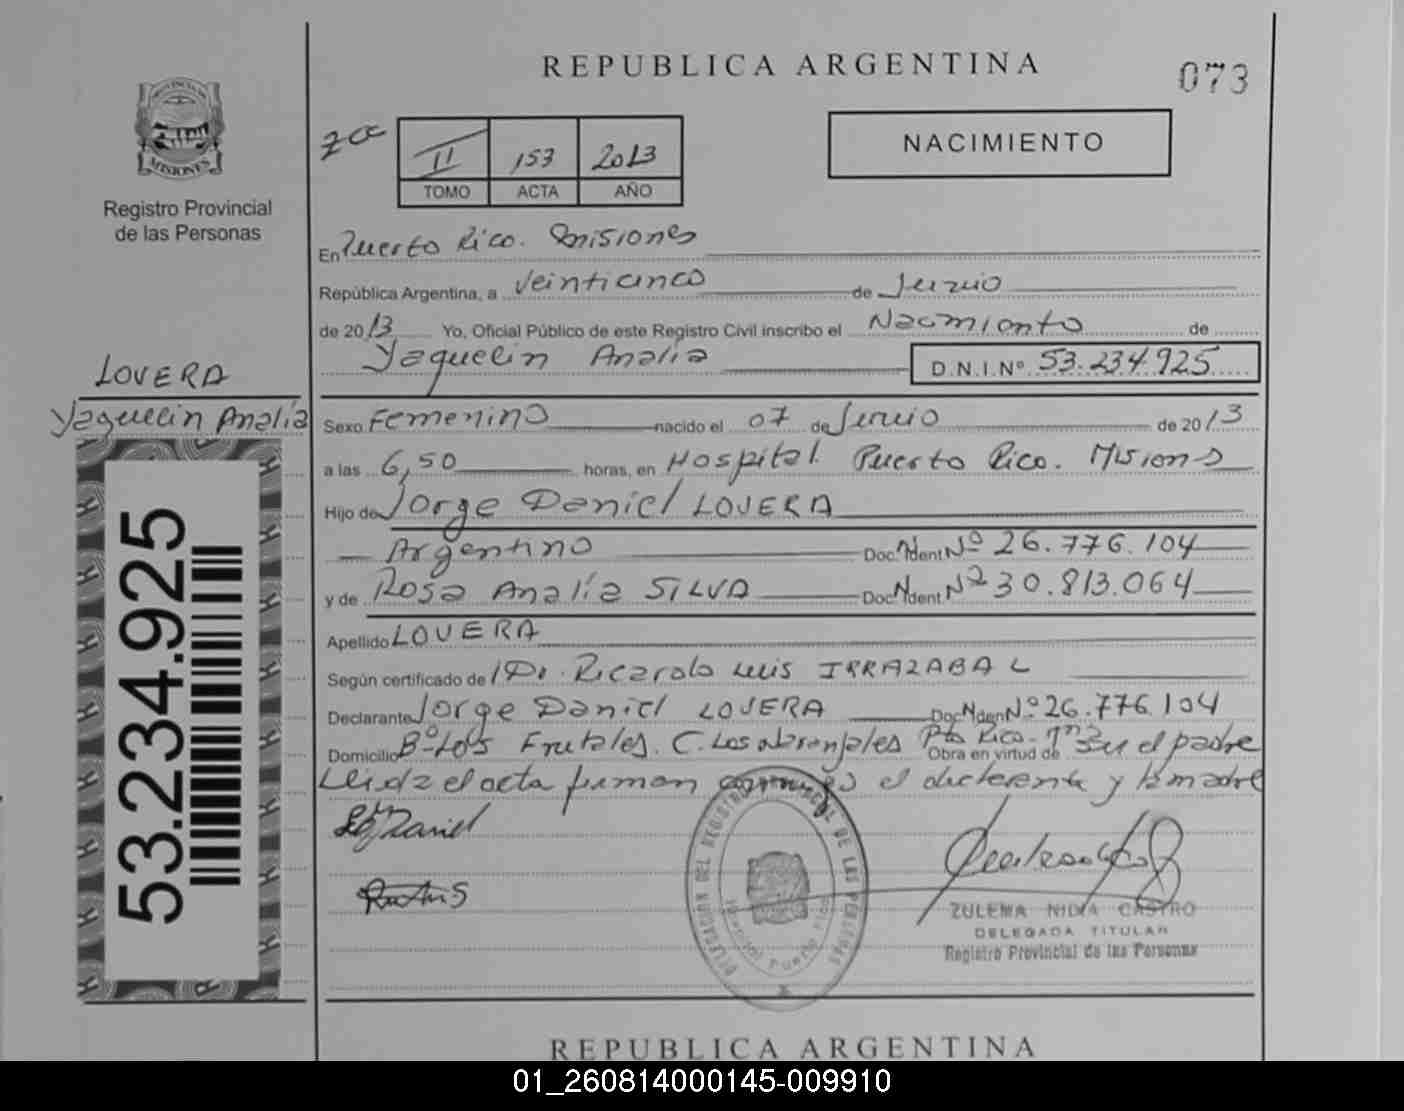 REPUBLICA ARGENTINA
073
Registro Provincial
de las Personas
MISIONES
II 153 2013
TOMO ACTA AÑO
NACIMIENTO
En Puerto Rico. Misiones
República Argentina, a veinticinco de Junio
de 2013 Yo, Oficial Público de este Registro Civil inscribo el Nacimiento de
Yaquelin Analía D.N.I.Nº 53.234.925
LOVERA
Yaquelin Analía
53.234.925
Sexo Femenino nacido el 07 de Junio de 2013
a las 6,50 horas, en Hospital Puerto Rico. Misiones
Hijo de Jorge Daniel LOVERA
Argentino Doc. Ident. Nº 26.776.104
y de Rosa Analía SILVA Doc. Ident. Nº 30.813.064
Apellido LOVERA
Según certificado de Dr. Ricardo Luis IRRAZABAL
Declarante Jorge Daniel LOVERA Doc. Iden Nº 26.776.104
Domicilio Bº Los Frutales. C. Los Naranjales Pto Rico. Mnes Obra en virtud de Ser el padre
Leída el acta firman conmigo el declarante y la madre
Daniel
DELEGACION DEL REGISTRO PROVINCIAL DE LAS PERSONAS
Hospital Puerto Rico
ZULEMA NIDIA CASTRO
DELEGADA TITULAR
Registro Provincial de las Personas
REPUBLICA ARGENTINA
01_260814000145-009910